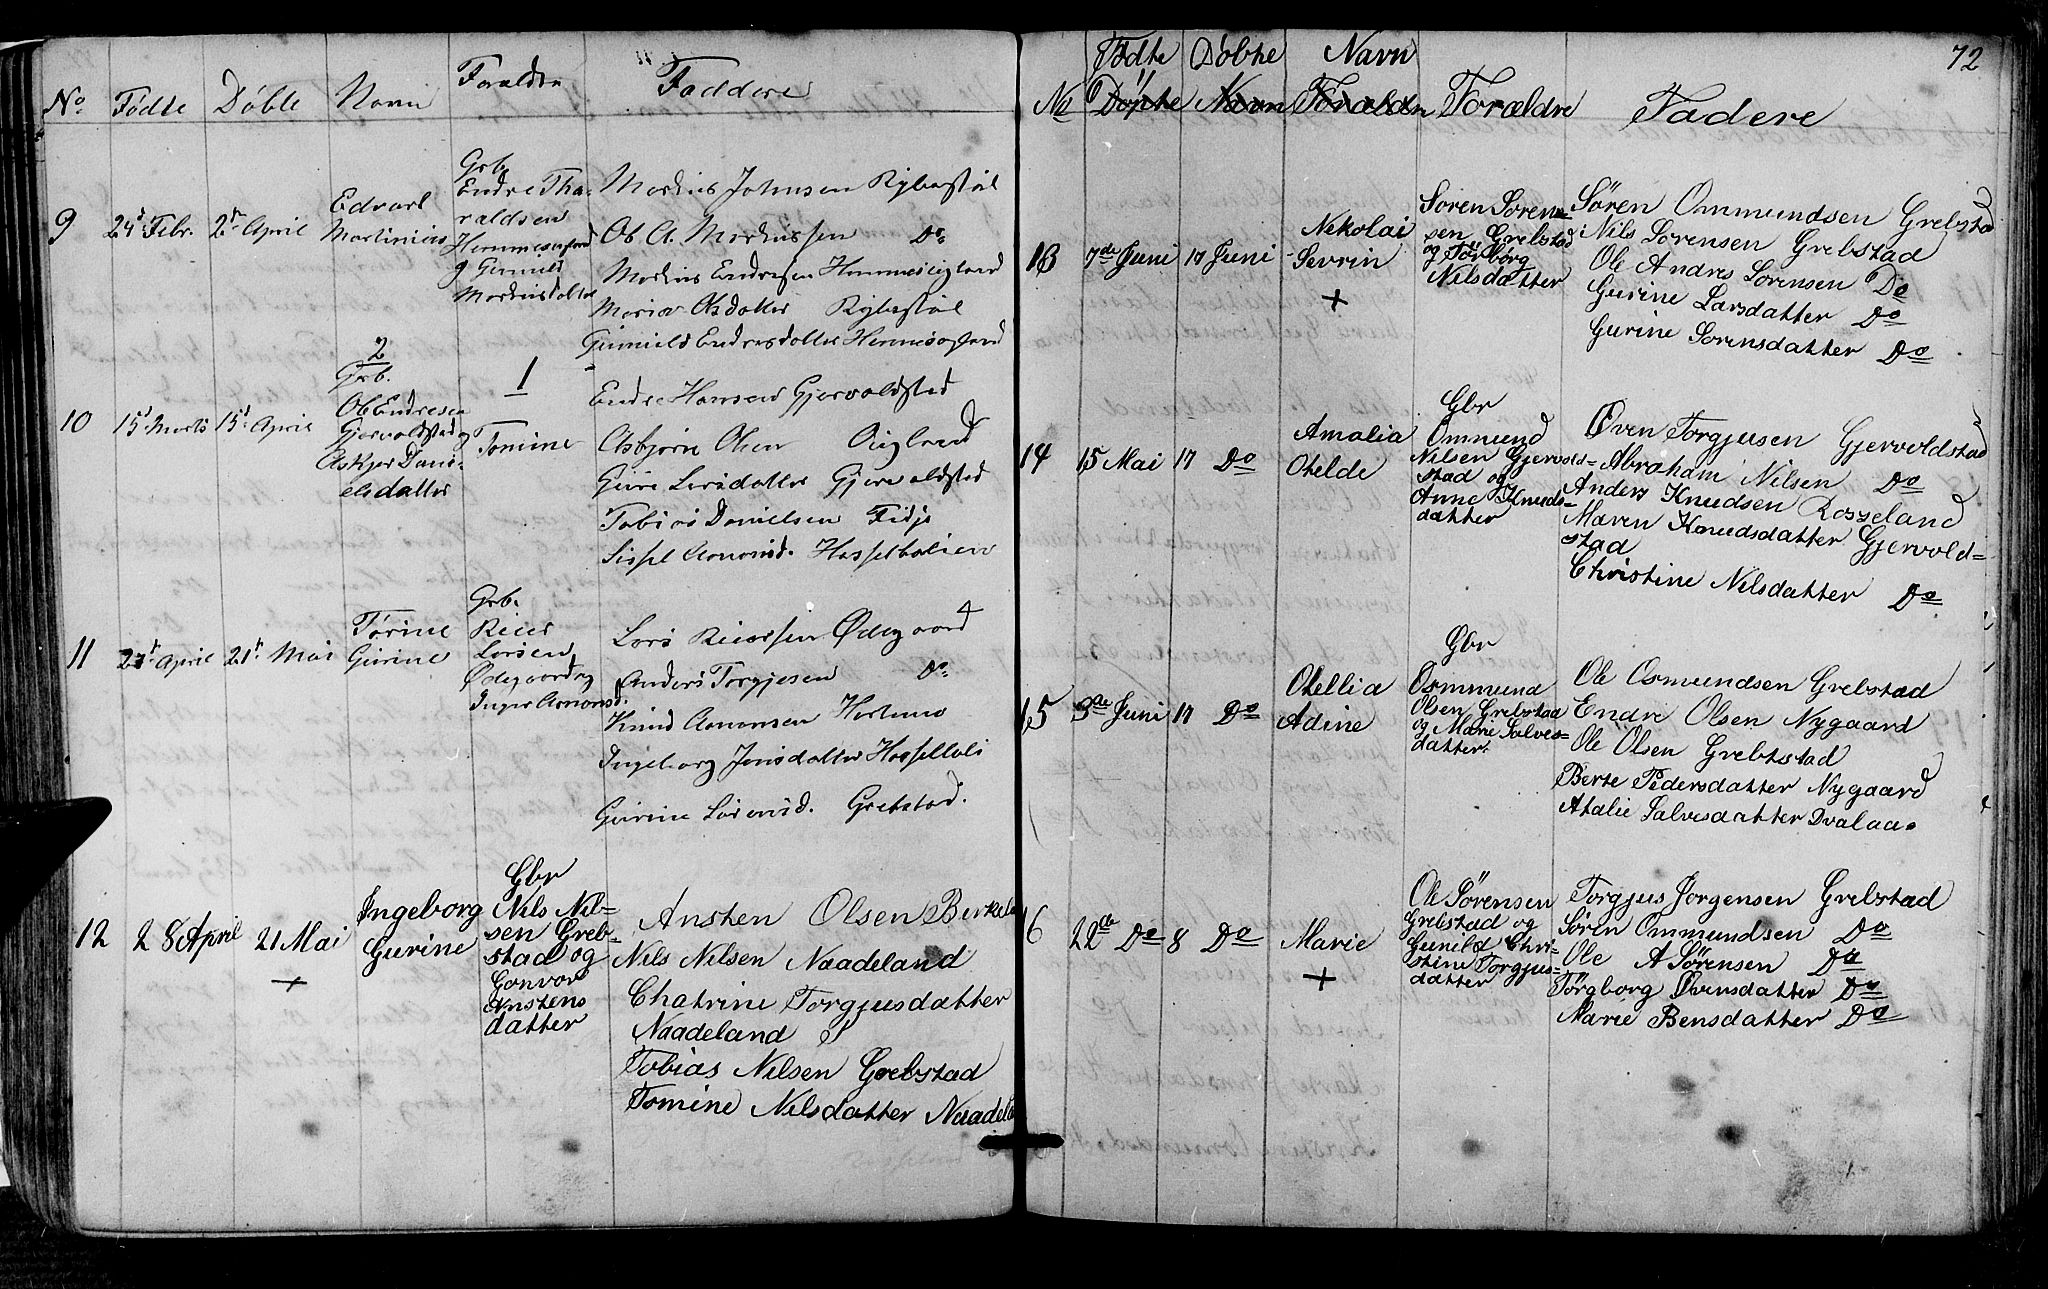 No Födte Döbte Navn Forældre Faddere
9 24d Febr. 2den April
Edvart
Martinius
Grb.
Endre Tha-
raldsen
Hemmesogland
g Gunild
Markusdatter
Markus Johnsen Rybestöl
Ob A. Markussen Do
Markus Endresen Hemmesogland
Maria Obsdatter Rybestöl
Gunnild Endresdatter Hemmesogland
10 15d Marts 15d April
2
Grb.
Ob Endresen
Gjervoldstad og
Askjer Dani-
elsdatter
1
Tomine
Endre Hansen Gjervoldstad
Asbjörn Olsen Oigland
Guri Larsdatter Gjervoldsted
Tobias Danielsen Fidje
Sissel Aanonsd. Hasseltalien
11 27d April 21d Mai
Törine
Gurine
Grb.
Reier
Larsen
Ödegaard og
Inger Aanonsd.
Lars Reiersen Ödegaard
Anders Torgjesen Do
Knud Aanonsen
Ingeborg Jensdatter
Gurine Sörensd. Grebstad.
12 28 April 21 Mai
+
Ingeborg
Gurine
Gbr
Nils Nil=
sen Greb=
stad og
Gonvor
Anstens
datter
Ansten Olsen Berkela
Nils Nilsen Naadeland
Chatrine Torgjusdatter
Naadeland
Tobias Nilsen Grebstad
Tomine Nilsdatter Naadela
72
Födte Döbte Navn
No Döpte Navn Forældre Forældre Fadere
13 7de Juni 17 Juni
Nekolai
Sevrin
+
Sören Sören=
sen Grebstad
og Törborg
Nilsdatter
Sören Ommundsen Grebstad
Nils Sörensen Grebstad
Ole Andres Sörensen Do
Gurine Larsdatter Do
Gurine Sörensdatter Do
14 15 Mai 17 Do
Amalia
Otelde
Gbr
Ommund
Nilsen Gjervold=
stad og
Anne Knuds=
datter
Even Torgjusen Gjervoldstad
Abraham Nilsen Do
Anders Knudsen Rosseland
Maren Knudsdatter Gjervold=
stad
Christine Nilsdatter Do
15 3de Juni 17 Do
Otellia
Adine
Gbr
Osmmund
Olsen Grebstad
og Marie Salves=
datter.
Ole Osmundsen Grebstad
Endre Olsen Nygaard
Ole Olsen Grebtstad
Berte Pedersdatter Nygaard
Atalie Salvesdatter Dvalaa.
16 22de Do 8 Do
Marie
+
Ole Sörensen
Grebstad og
Gunild Chri=
stine Torgjus=
datter
Torgjus Jörgensen Grebstad
Sören Ommundsen Do
Ole A Sörensen Do
Törgborg Evensdatter Do
Marie Bensdatter Do